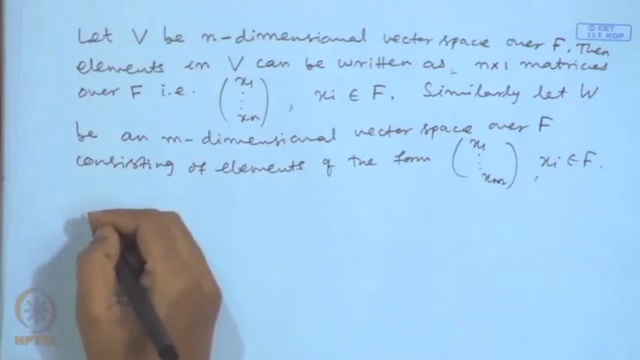 © CET
I.I.T. KGP
Let V be n-dimensional vector space over F. Then
elements in V can be written as, n×1 matrices
over F i.e. (x₁ ⋮ xₙ) , xi ∈ F. Similarly let W
be an m-dimensional vector space over F
consisting of elements of the form (x₁ ⋮ xₘ) , xi ∈ F.
NPTEL